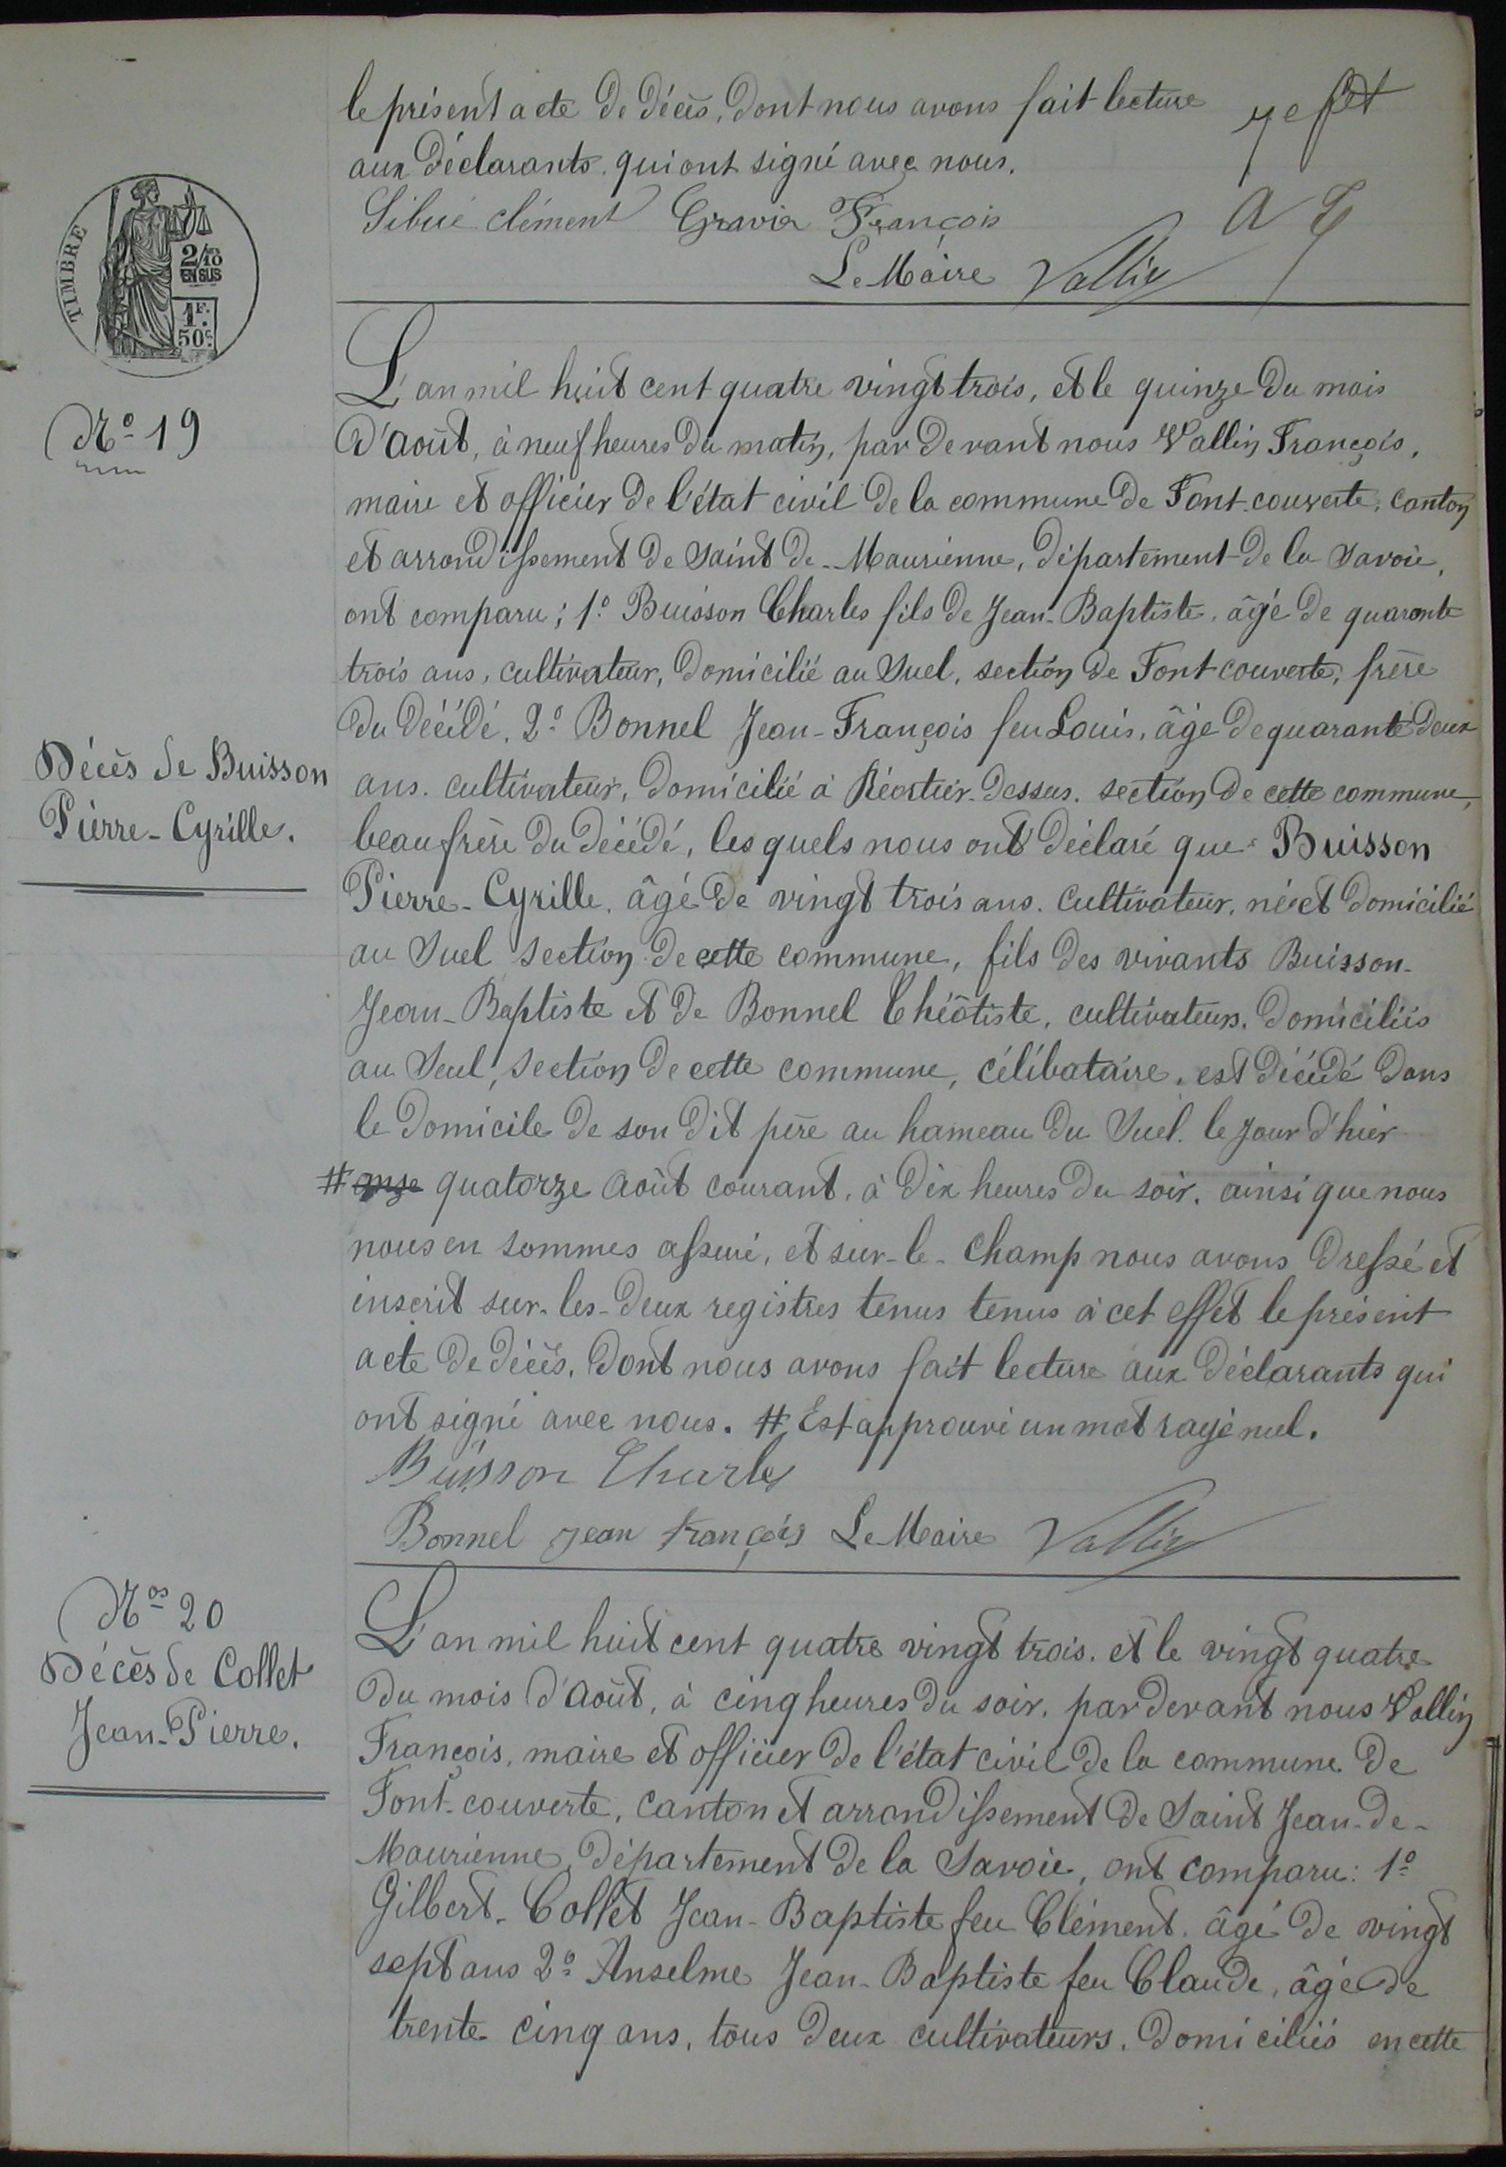 le présent acte de décès, dont nous avons fait lecture
aux déclarants qui ont signé avec nous.
Sibué clément Gravier François
Le Maire Vallin
TIMBRE
2/10
EN SUS
1F.
50c
No 19
L'an mil huit cent quatre vingt trois, et le quinze du mois
d'août, à neuf heures du matin, par devant nous Vallin François,
maire et officier de l'état civil de la commune de Font-couverte, canton
et arrondissement de Saint de-Maurienne, département de la Savoie,
ont comparu; 1o Buisson Charles fils de Jean-Baptiste, âgé de quarante
trois ans, cultivateur, domicilié au Suel, section de Font couverte, frère
du décédé, 2o Bonnel Jean-François feu Louis, âgé de quarante deux
Décès de Buisson
Pierre-Cyrille.
ans, cultivateur, domicilié à Réortier-dessus, section de cette commune,
beau frère du décédé, les quels nous ont déclaré que Buisson
Pierre-Cyrille, âgé de vingt trois ans, cultivateur, né et domicilié
au Suel section de cette commune, fils des vivants Buisson-
Jean-Baptiste et de Bonnel Théotiste, cultivateurs, domiciliés
au Seul, section de cette commune, célibataire, est décédé dans
le domicile de son dit père au hameau du Suel, le jour d'hier
# onze quatorze août courant, à dix heures du soir, ainsi que nous
nous en sommes assuré, et sur-le-champ nous avons dressé et
inscrit sur-les-deux registres tenus tenus à cet effet le présent
acte de décès, dont nous avons fait lecture aux déclarants qui
ont signé avec nous. # Est approuvé un mot rayé nul.
Buisson Charles
Bonnel jean françois Le Maire Vallin
Nos 20
Décès de Collet
Jean-Pierre.
L'an mil huit cent quatre vingt trois, et le vingt quatre
du mois d'août, à cinq heures du soir, par devant nous Vallin
François, maire et officier de l'état civil de la commune de
Font-couverte, canton et arrondissement de Saint Jean-de-
Maurienne, département de la Savoie, ont comparu: 1o
Gilbert-Collet Jean-Baptiste feu Clément, âgé de vingt
sept ans 2o Anselme Jean-Baptiste feu Claude, âgé de
trente-cinq ans, tous deux cultivateurs, domiciliés en cette